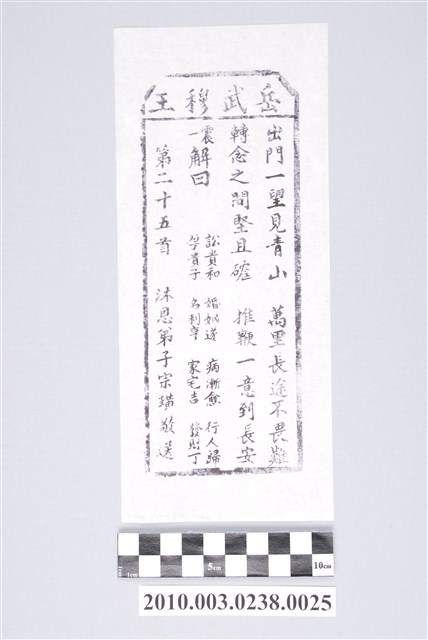 岳武穆王
出門一望見青山 萬里長途不畏難
轉念之間堅且確 推鞭一意到長安
震一 解曰
訟貴和 婚姻遂 病漸愈 行人歸
孕貴子 名利亨 家宅吉 發財丁
第二十五首 沐恩弟子宗璜敬送
1cm 5cm 10cm
2010.003.0238.0025